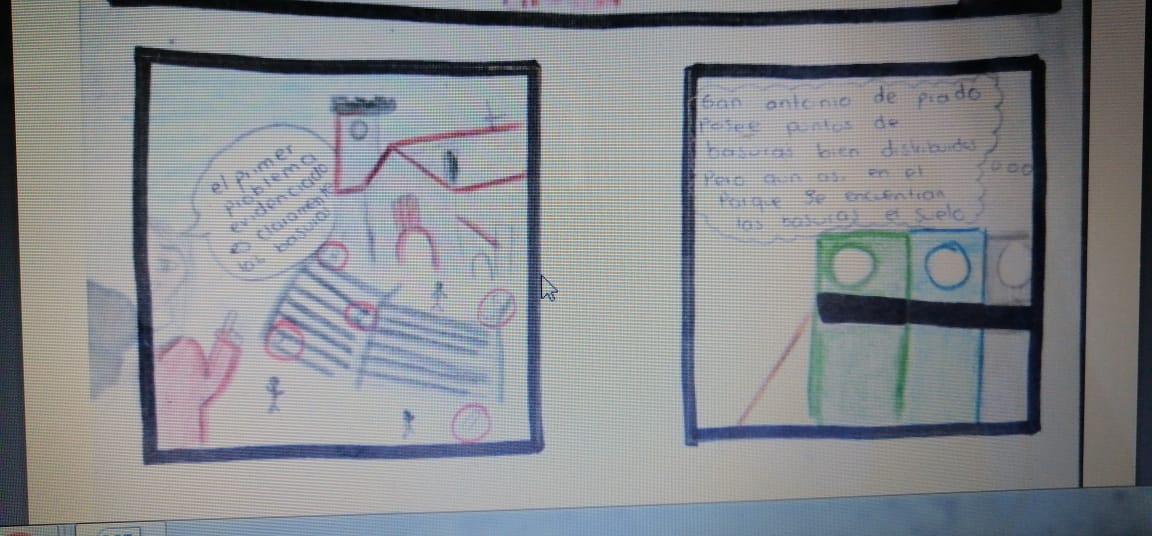 el primer
problema
evidenciado
es claramente
las basuras
San antonio de prado
Posee puntos de
basuras bien distribuidas
Pero aun asi en el
Parque se encuentran
las basuras el suelo